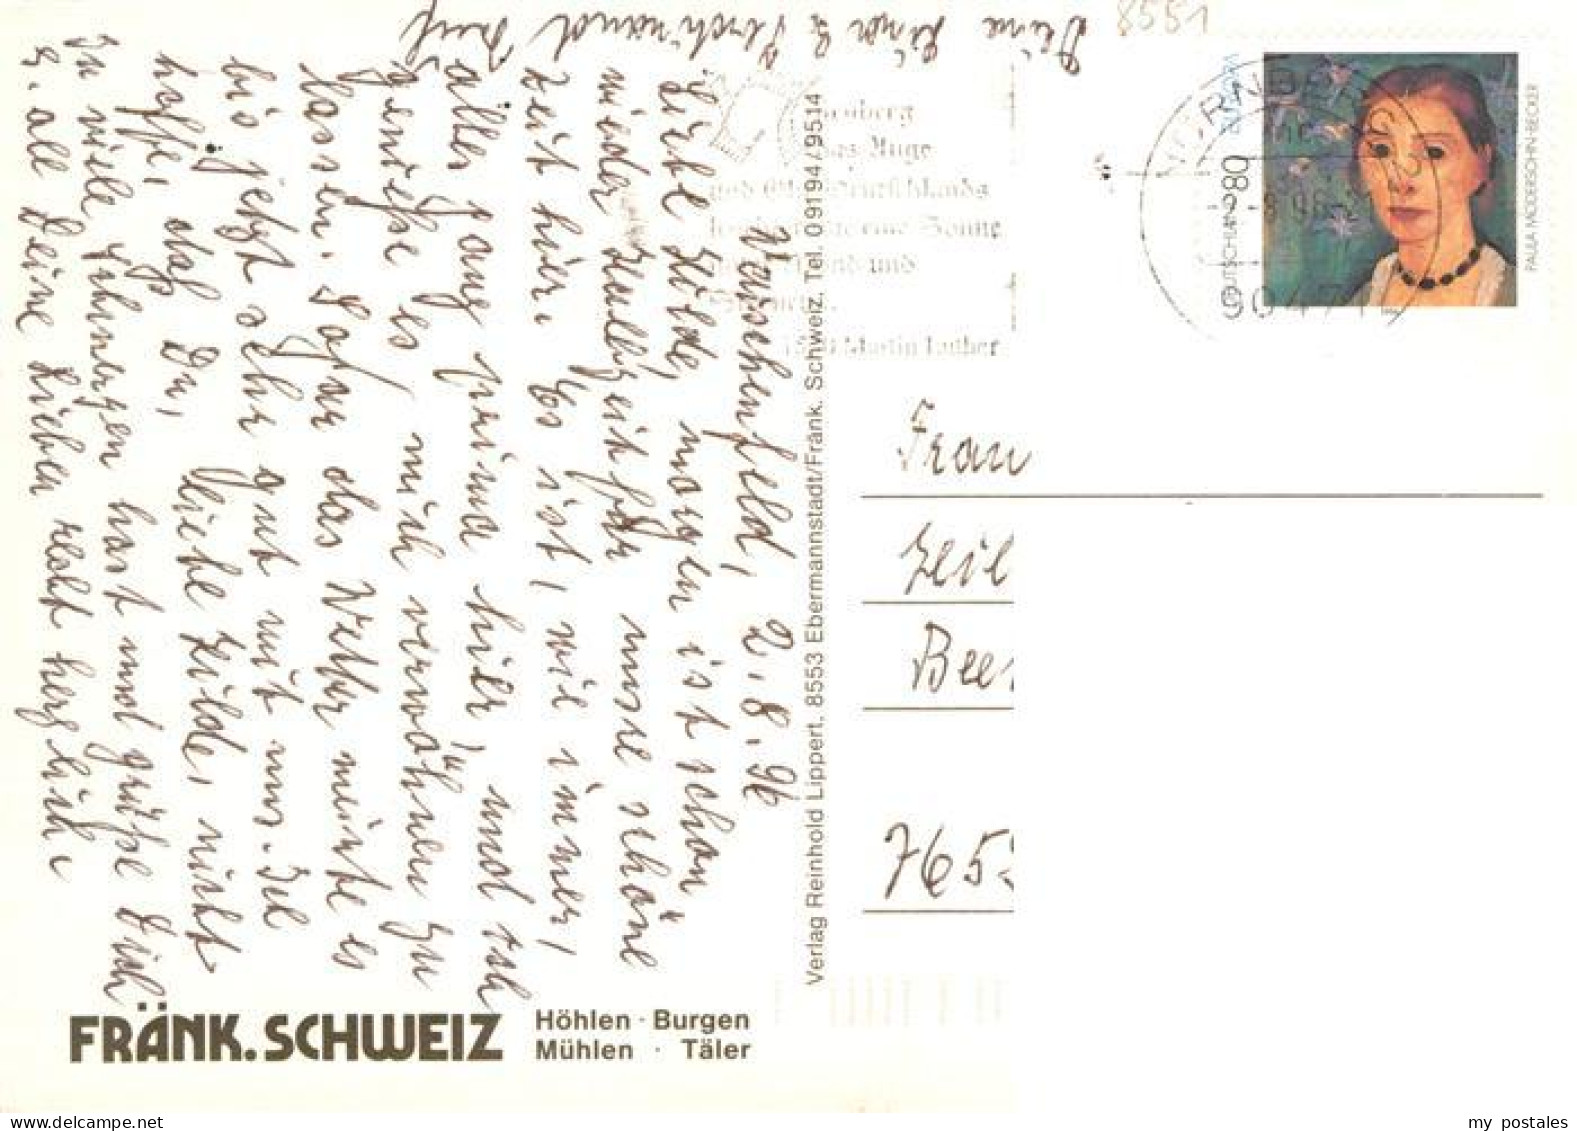 Wüschenfeld, 2.8.96
Liebe Hilde, morgen ist schon
wieder Halbzeit für unsre schöne
Zeit hier. Es ist, wie immer,
alles ganz prima hier, und ich
genieße es, mich verwöhnen zu
lassen. Sogar das Wetter meinte es
bis jetzt sehr gut mit uns. Ich
hoffe, daß Du, liebe Hilde, nicht
zu viele Schmerzen hast und grüße Dich
u. all Deine Lieben recht herzlich.
Deine
8551
FRÄNK. SCHWEIZ
Höhlen · Burgen
Mühlen · Täler
Verlag Reinhold Lippert, 8553 Ebermannstadt/Fränk. Schweiz, Tel. 09194/9514
Nürnberg
das Auge
und Ohr Deutschlands
eine Sonne
Mond und
Martin Luther
NÜRNBERG
90471
DEUTSCHLAND 80
PAULA MODERSOHN-BECKER
Frau
Zeil
Bee
765
my postales